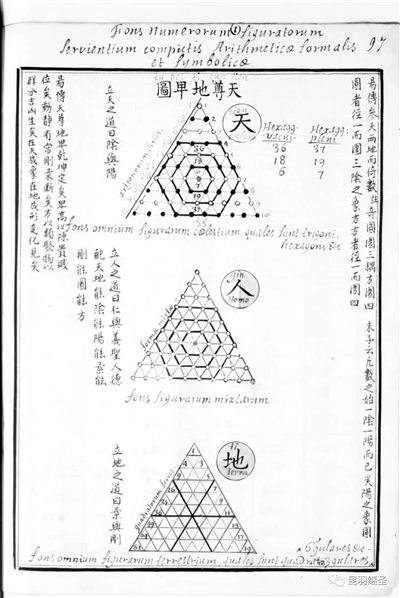 Fons Numerorum & figuratorum
servientium computis Arithmeticæ formalis 97
et Symbolicæ
天尊地卑圖
易傳參天兩地而倚數 奇圓圍三耦方圍四
朱子云凡數之始一陰一陽而已矣陽之象圓
圓者徑一而圍三陰之象方方者徑一而圍四
天
Hexag: Hexag:
vacui pleni
36 37
18 19
6 7
立天之道曰陰與陽
易傳天尊地卑乾坤定矣卑高以陳貴賤
位矣動靜有常剛柔斷矣方以類聚物以
群分吉凶生矣在天成象在地成形變化見矣
fons omnium figurarum cælestium quales sunt trigoni,
hexagoni &c
gin
人
Homo
立人之道曰仁與義聖人德
能天地能陰能陽能柔能
剛能圓能方
fons figurarum mixtarum
ti
地
terra
立地之道曰柔與剛
fons omnium figurarum terrestrium, quales sunt quadrata
昆羽继圣